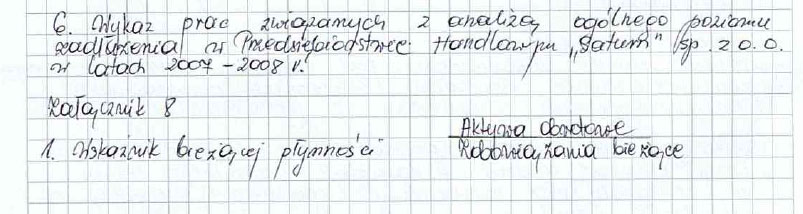 6. Wykaz prac związanych z analizą ogólnego poziomu
zadłużenia w Przedsiębiorstwie Handlowym „Saturn" Sp. z o.o.
w latach 2007 – 2008 r.
Załącznik 8
1. Wskaźnik bieżącej płynności Aktywa obrotowe
Zobowiązania bieżące